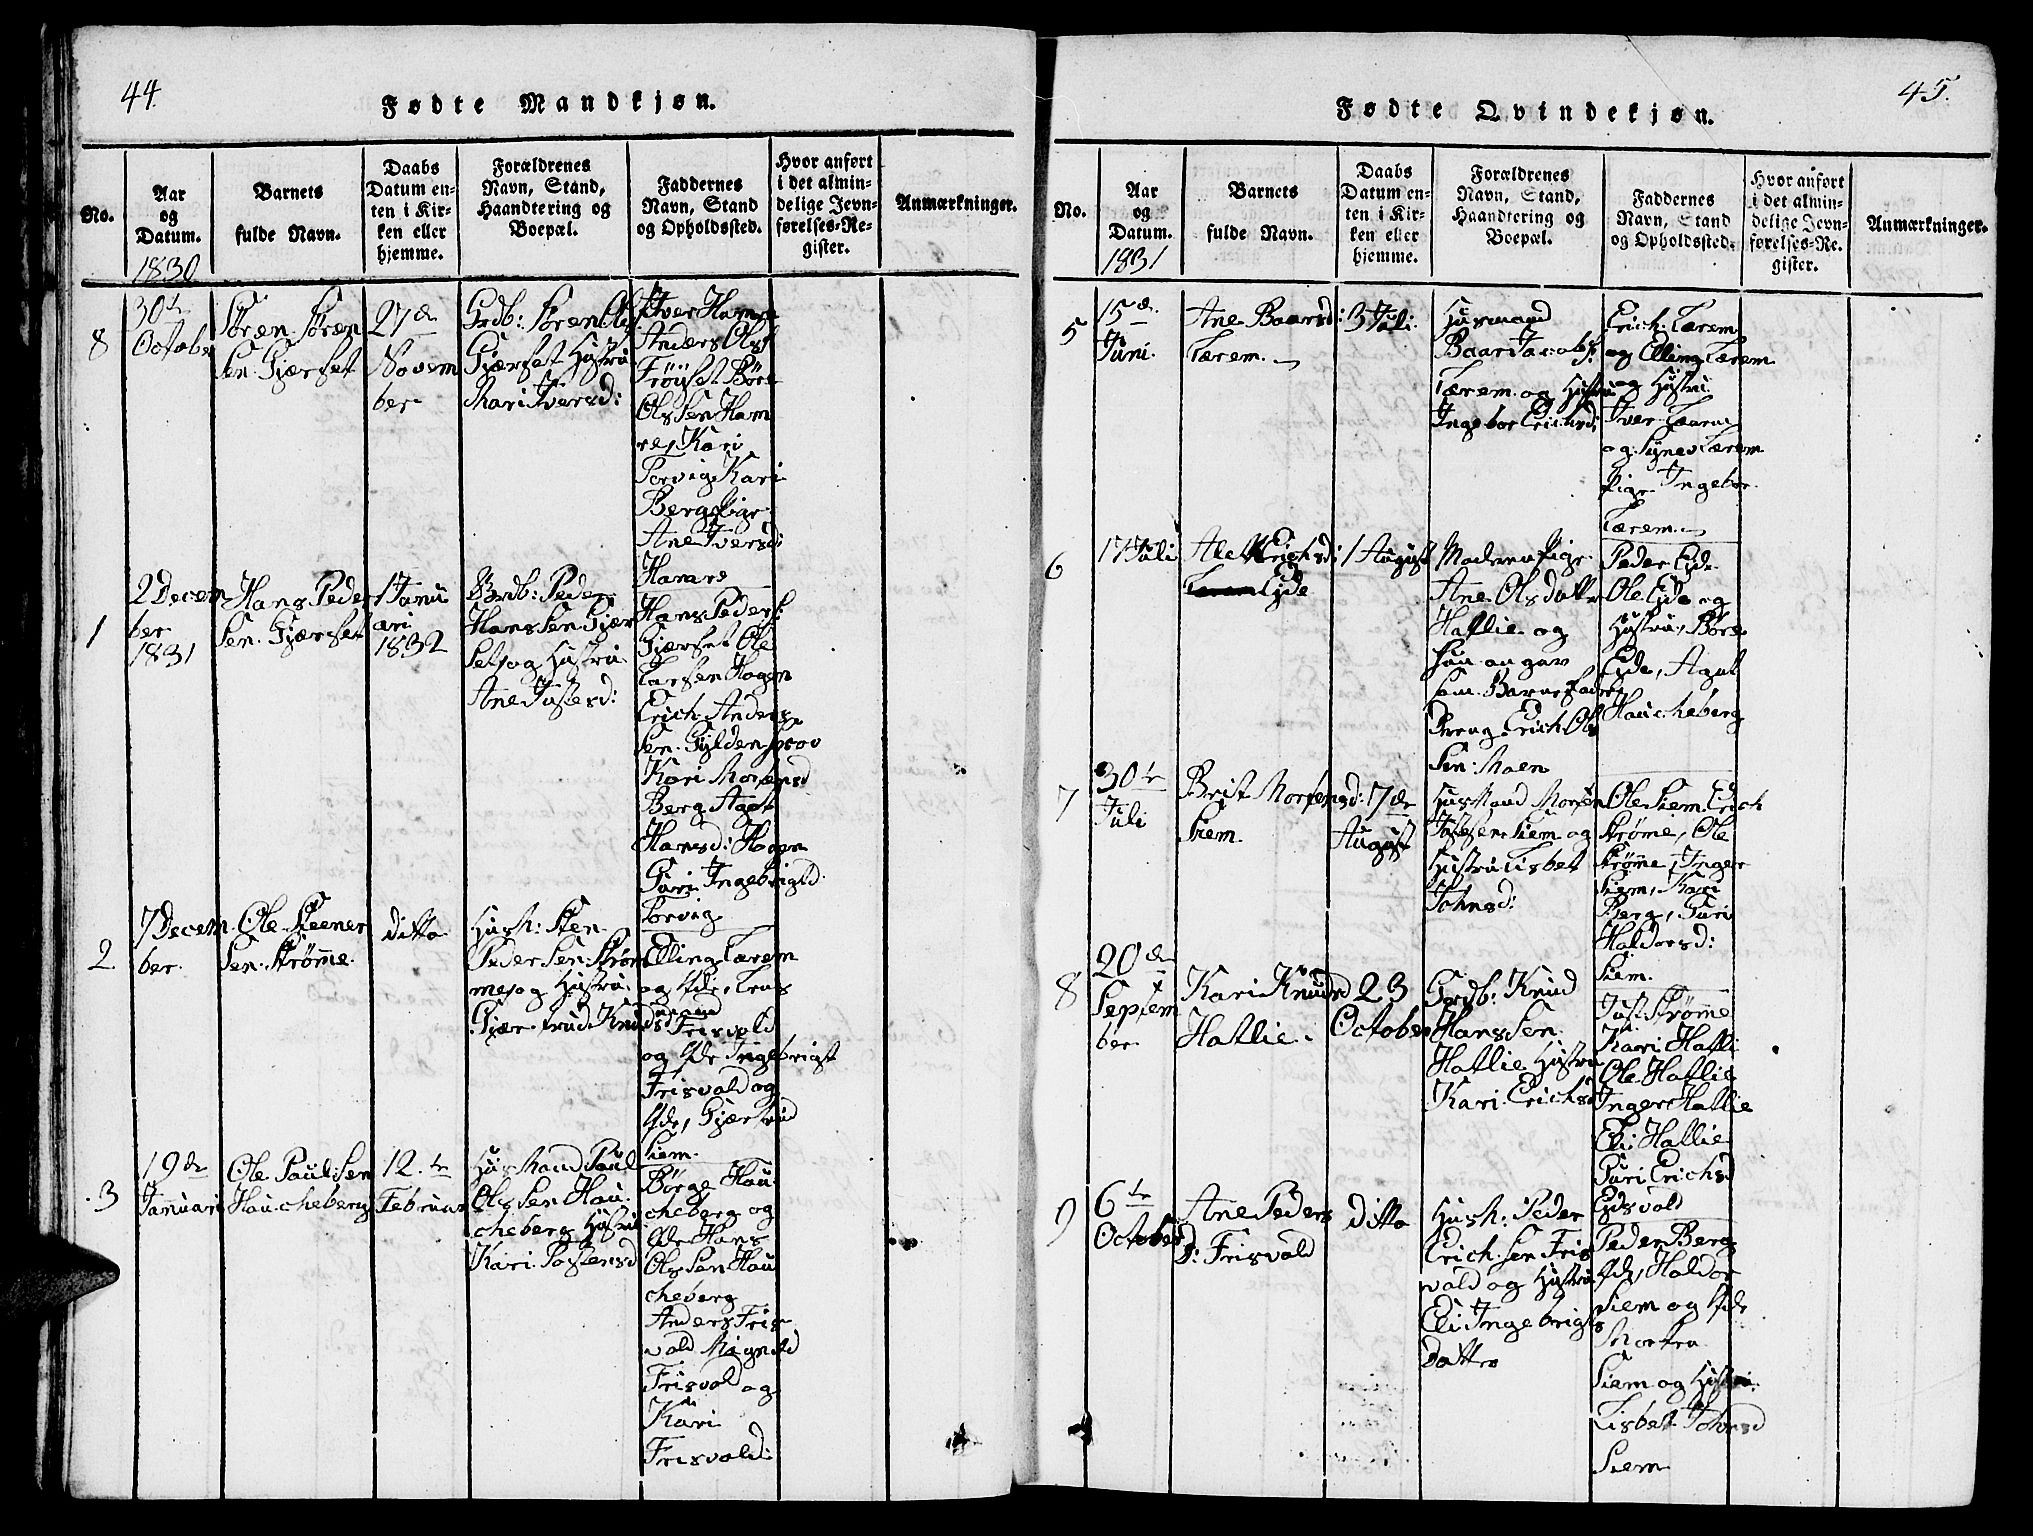 44.
Fødte Mandkjøn.
No.
Aar
og
Datum.
1830
Barnets
fulde Navn.
Daabs
Datum en-
ten i Kir-
ken eller
hjemme.
Forældrenes
Navn, Stand,
Haandtering og
Boepæl.
Faddernes
Navn, Stand
og Opholdssted.
Hvor anført
i det almin-
delige Jevn-
førelses-Re-
gister.
Anmærkninger.
8
30te
Octobe
Sören Sören
Sen Gjærset
27de
Novem
ber
Grdb: Sören Ols
Gjærset Hustru
Mari Iversd:
Iver Hamre
Anders Ols
Fröyset Böre
Ols Sen Ham
re, Kari
Torvig Kari
Berg Pige
Ane Iversd:
Hamre
1
2 Decem
ber
1831
Hans Peder
Sen Gjærset
1 Janu
ari
1832
Grdb: Peder
Hans Sen Gjær
Set, og Hustru
Ane Justesd:
Hans Peders:
Gjærset Ole
Larsen Hagen
Erich Anders
Sen Gyldenskov
Kari Mortensd
Berg Agat
Hansd: Hagen
Guri Ingebrigtd
Torvig
2.
7 Decem
ber
Ole Steener
Sen Strømme
ditto
Husm: Sten
Peder Sen Strøm
me, og Hustru
Gjærtrud Knuds
Elling Lærem
og Hde, Lens
mand
Frisvold
og Hde Ingebrigt
Frisvold og
Hde, Gjærtrud
Siem
3
19de
Januari
Ole Paul Sen
Haucheberg
12te
Februar
Husmand Paul
Ols Sen Hau
cheberg Hustru
Kari Tostensd
Börge Hau
cheberg og
Hde Hans
Ols Sen Hau
cheberg
Anders Fris
vold Magnild
Frisvold og
Kari
Frisvold:
45.
Fødte Qvindekjøn.
No.
Aar
og
Datum.
1831
Barnets
fulde Navn.
Daabs
Datum en-
ten i Kir-
ken eller
hjemme.
Forældrenes
Navn, Stand,
Haandtering og
Boepæl.
Faddernes
Navn, Stand
og Opholdssted.
Hvor anført
i det almin-
delige Jevn-
førelses-Re-
gister.
Anmærkninger.
5
15de
Juni.
Ane Baarsd:
Lærem.
3 Juli.
Husmand
Baar Jacobs:
Lærem og Hustru
Ingebor Erichsd:
Erich Lærem
og Elling Lærem
og Hustru
Iver Lærem
og Synev Lærem
Pige Ingebor
Lærem.
6
17 Juli
Alet Erichsd:
Lærem Eide
1 August
Moderen Pige
Ane Olsdatter
Hatlie og
Hun angav
som Barnefader
Dreng Erich Ols
Sen Moen
Peder Eide
Ole Eide og
Hustru, Böre
Eide, Agat
Haucheberg
7
30te
Juli
Brit Mortensd:
Siem
7de
August
Husmand Morten
Justesen Siem og
Hustru Lisbet
Johnsd:
Ole Siem Erich
Strømme, Ole
Strømme, Inger
Siem, Kari
Berg, Guri
Haldorsd:
Siem.
8
20de
Septem
ber
Kari Knudsd
Hatlie.
23
October
Gordb: Knud
Hans Sen
Hatlie Hustru
Kari Erichsd
Just Strømme
Kari Hatli
Ole Hatlie
Inger Hatlie
Eli Hatlie
Guri Erichsd
Eidsvold
9
6te
October
Ane Peders
d: Frisvold
ditto
Husm: Peder
Erich Sen Fris
vold og Hustru
Eli Ingebrigts
datter
Peder Berg
Hde, Haldor
Siem og Hde
Morten
Siem og Hustru
Lisbet Johnsd
Siem